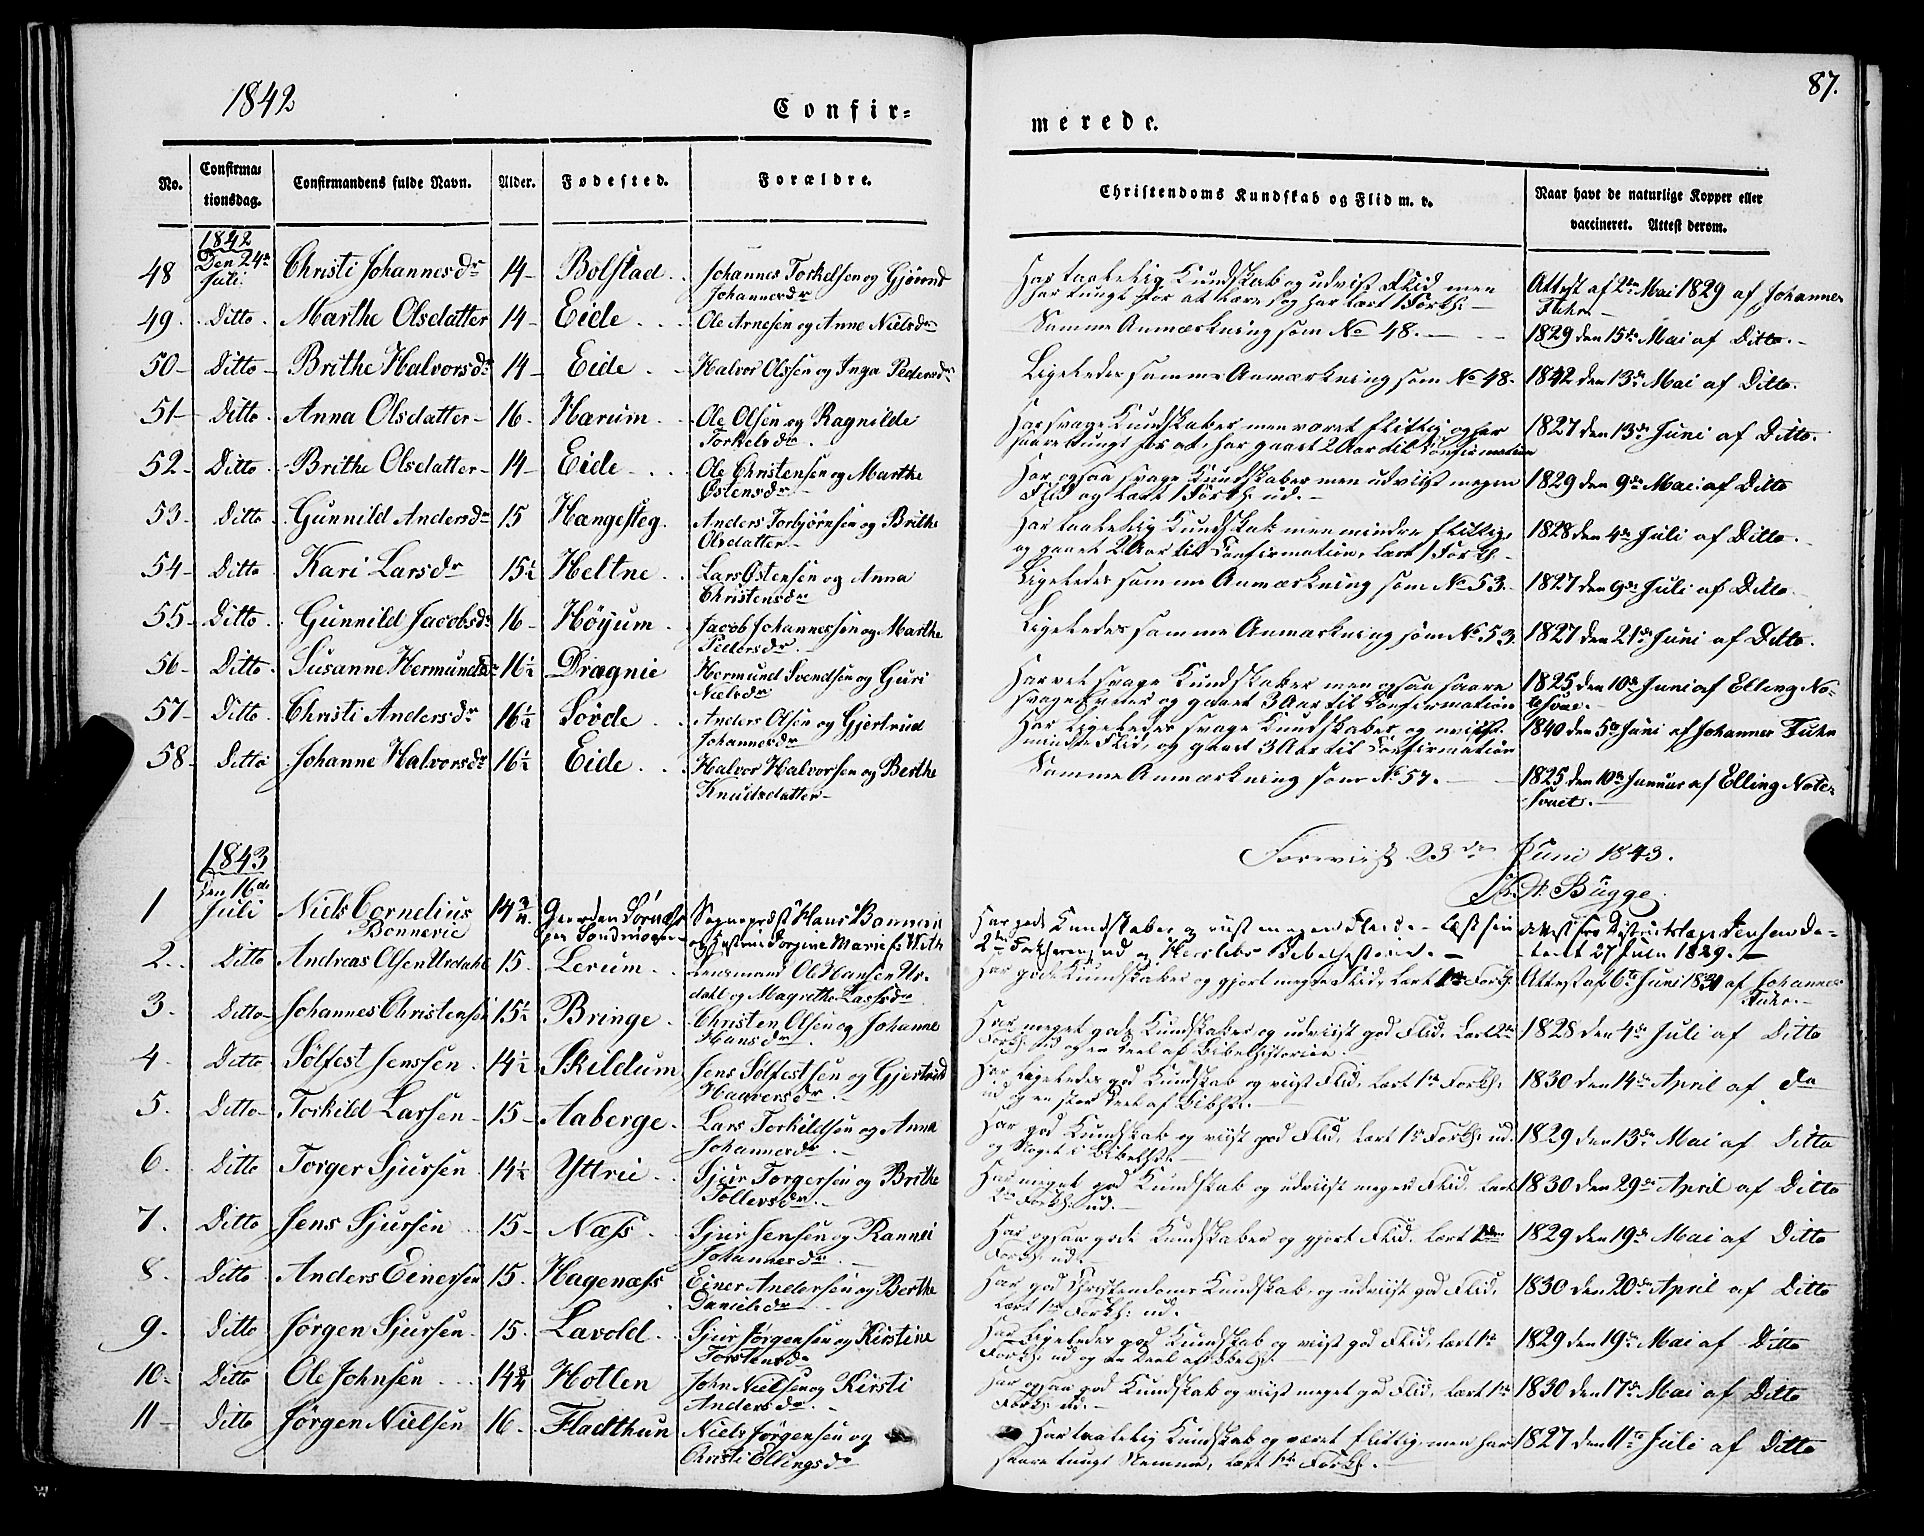 1842
Confir=
merede.
87.
No.
Confirma=
tionsdag.
Confirmandens fulde Navn.
Alder.
Fødested.
Forældre.
Christendoms Kundskab og Flid m. v.
Naar havt de naturlige Kopper eller
vaccineret. Attest derom.
1842
48 Den 24de Juli Christi Johannesdr 14 Bolstad Johannes Torkelsen og Gjørond Johannesdr Har taalelig Kundskab og udviist Flid men har tungt for at lære og har lært 1 Forkl: Attest af 2den Mai 1829 af Johannes Fuhr
49 Ditto Marthe Olsdatter 14 Eide Ole Arnesen og Anne Nielsdr Samme Anmærkning som No 48. 1829 den 15de Mai af Ditto
50 Ditto Brithe Halvorsdr 14 Eide Halvor Olssen og Inga Pedersdr Ligeledes samme Anmærkning som No 48. 1842 den 13de Mai af Ditto.
51 Ditto Anna Olsdatter 16 Harum Ole Olsen og Ragnilde Torkelsdr Har svage Kundskaber men været flittig og har saare tungt for at, har gaaet 2 Aar til Confirmation 1827 den 13de Juni af Ditto.
52 Ditto Brithe Olsdatter 14 Eide Ole Christensen og Marthe Østensdr Har ogsaa svage Kundskaber men udviist megen Flid og lært 1 Forkl: ud. 1829 den 9de Mai af Ditto
53 Ditto Gunnild Andersdr 15 Hængesteg Anders Torbjørnsen og Brithe Olsdatter Har taalelig Kundskab men mindre flittig, og gaaet 2 Aar til Confirmation, lært 1 Forkl. 1828 den 4de Juli af Ditto.
54 Ditto Kari Larsdr 15½ Heltne Lars Østensen og Anna Christensdr Ligeledes samme Anmærkning som No 53. 1827 den 9de Juli af Ditto
55 Ditto Gunnild Jacobsdr 16 Høyum Jacob Johannessen og Marthe Pedersdr Ligeledes samme Anmærkning som No 53. 1827 den 21de Juni af Ditto.
56 Ditto Susanne Hermundsdr 16½ Drægnie Hermund Svendsen og Guri Nielsdr Har vel svage Kundskaber men ogsaa saare svage Evner og gaaet 3 Aar til Confirmation 1825 den 10de Juni af Elling
57 Ditto Christi Andersdr 16½ Sovde Anders Olsen og Gjertrud Johannesdr Har ligeledes svage Kundskaber og udviist mindre Flid, og gaaet 3 Aar til Confirmation 1840 den 5te Juni af Johannes Fuhr
58 Ditto Johanne Halvorsdr 16½ Eide Halvor Halvorsen og Berthe Knudsdatter Samme Anmærkning som No 57. 1825 den 10de Januar af Elling
Foreviist 23de Juni 1843.
Bugge
1843
1 Den 16de Juli Niels Cornelius Bonnevie 14¾ Sognepræst Hans Bonnevie Har gode Kundskaber og viist megen Flid. Læst sin 2den Forklaring ud og Herslebs Bibelhistorie. 27 Juli 1829.
2. Ditto Andreas Olsen Urdahl 15 Lerum Lensmand Ole Hansen Urdahl og Magrethe Larsdr Har gode Kundskaber og gjort megen Flid, lært 1ste Forkl: Attest af 6te Juni 1831 af Johannes Fuhr
3. Ditto Johannes Christensen 15½ Bringe Christen Olsen og Johanne Hansdr Har meget gode Kundskaber og udviist god Flid. Lært 2den Forkl: ud og en Deel af Bibelhistorien. 1828 den 4de Juli af Ditto
4. Ditto Sølfest Jenssen 14½ Skildum Jens Sølfestsen og Gjertrud Haaversdr Har ligeledes god Kundskab og viist Flid, lært 1ste Forkl: ud og en stor Deel af Bibhst: 1830 den 14de April af do
5. Ditto Torkild Larsen 15 Aaberge Lars Torkildsen og Anna Johannesdr Har god Kundskab og viist god Flid, lært 1ste Forkl: ud og Noget i Bibelhst: 1829 den 13de Mai af Ditto
6. Ditto Torger Sjursen 14½ Yttrie Sjur Torgersen og Brithe Tollevsdr Har meget god Kundskab og udviist megen Flid, lært 2den Forkl: ud. 1830 den 29de April af Ditto
7. Ditto Jens Sjursen 15 Næss Sjur Jensen og Rannei Johannesdr Har ogsaa gode Kundskaber og gjort Flid, lært 1ste Forkl: ud. 1829 den 19de Mai af Ditto
8. Ditto Anders Einersen 15. Hagenæss Einer Andersen og Berthe Danielsdr Har god Christendoms Kundskab, og udviist god Flid, lært 1ste Forkl: ud. 1830 den 20de April af Ditto
9. Ditto Jørgen Sjursen 15. Lavold Sjur Jørgensen og Kirstine Torstensdr Har ligeledes god Kundskab og viist god Flid, lært 1ste Forkl: ud og en Deel af Bblhst: 1829 den 19de Mai af Ditto
10. Ditto Ole Johnsen 14¾ Hotlen John Nielsen og Kirsti Andersdr Har ogsaa god Kundskab og viist meget god Flid, lært 1ste Forkl: ud. 1830 den 17de Mai af Ditto
11 Ditto Jørgen Nielsen 16. Fladthun Niels Jørgensen og Christi Ellingsdr Har taalelig Kundskab og været flittig, men har saare tungt Nemme, lært 1ste Forkl. 1827 den 11te Juli af Ditto